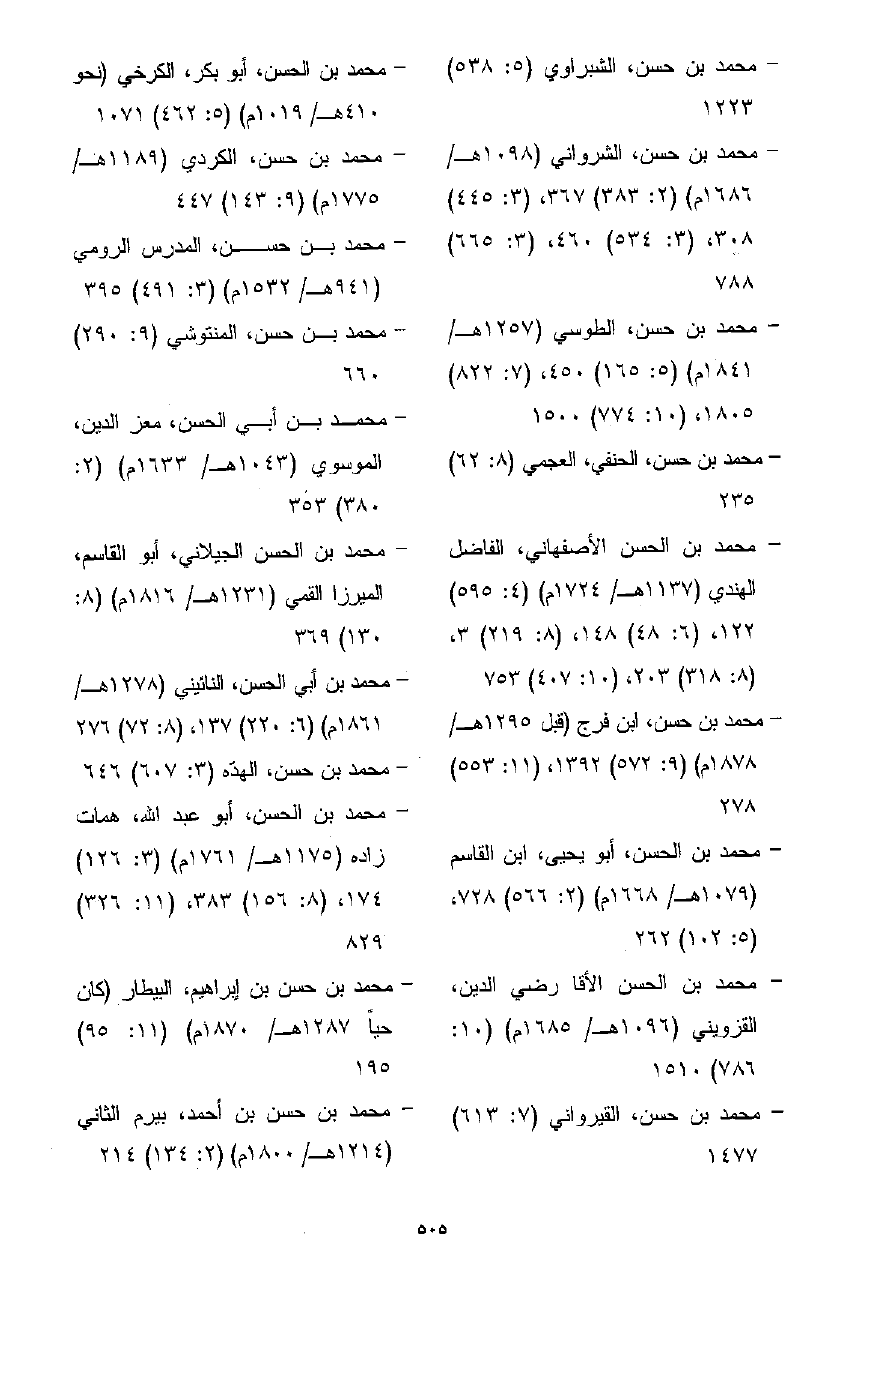 - محمد بن حسن، الشبراوي (٥: ٥٣٨)
١٢٢٣
- محمد بن حسن، الشرواني (١٠٩٨هـ/
١٦٨٦م) (٢: ٣٨٣) ٣٦٧، (٣: ٤٤٥)
٣٠٨، (٣: ٥٣٤) ٤٦٠، (٣: ٦٦٥)
٧٨٨
- محمد بن حسن، الطوسي (١٢٥٧هـ/
١٨٤١م) (٥: ١٦٥) ٤٥٠، (٧: ٨٢٢)
١٨٠٥، (١٠: ٧٧٤) ١٥٠٠
- محمد بن حسن، الحنفي، العجمي (٨: ٦٢)
٢٣٥
- محمد بن الحسن الأصفهاني، الفاضل
الهندي (١١٣٧هـ/ ١٧٢٤م) (٤: ٥٩٥)
١٢٢، (٦: ٤٨) ١٤٨، (٨: ٢١٩) ٣،
(٨: ٣١٨) ٢٠٣، (١٠: ٤٠٧) ٧٥٣
- محمد بن حسن، ابن فرج (قبل ١٢٩٥هـ/
١٨٧٨م) (٩: ٥٧٢) ١٣٩٢، (١١: ٥٥٣)
٢٧٨
- محمد بن الحسن، أبو يحيى، ابن القاسم
(١٠٧٩هـ/ ١٦٦٨م) (٢: ٥٦٦) ٧٢٨،
(٥: ١٠٢) ٢٦٢
- محمد بن الحسن الأقا رضي الدين،
القزويني (١٠٩٦هـ/ ١٦٨٥م) (١٠:
٧٨٦) ١٥١٠
- محمد بن حسن، القيرواني (٧: ٦١٣)
١٤٧٧
- محمد بن الحسن، أبو بكر، الكرخي (نحو
٤١٠هـ/ ١٠١٩م) (٥: ٤٦٢) ١٠٧١
- محمد بن حسن، الكردي (١١٨٩هـ/
١٧٧٥م) (٩: ١٤٣) ٤٤٧
- محمد بن حسن، المدرس الرومي
(٩٤١هـ/ ١٥٣٢م) (٣: ٤٩١) ٣٩٥
- محمد بن حسن، المنتوشي (٩: ٢٩٠)
٦٦٠
- محمد بن أبي الحسن، معز الدين،
الموسوي (١٠٤٣هـ/ ١٦٣٣م) (٢:
٣٨٠) ٣٥٣
- محمد بن الحسن الجيلاني، أبو القاسم،
الميرزا القمي (١٢٣١هـ/ ١٨١٦م) (٨:
١٣٠) ٣٦٩
- محمد بن أبي الحسن، النائيني (١٢٧٨هـ/
١٨٦١م) (٦: ٢٢٠) ١٣٧، (٨: ٧٢) ٢٧٦
- محمد بن حسن، الهدّه (٣: ٦٠٧) ٦٤٦
- محمد بن الحسن، أبو عبد الله، همات
زاده (١١٧٥هـ/ ١٧٦١م) (٣: ١٢٦)
١٧٤، (٨: ١٥٦) ٣٨٣، (١١: ٣٢٦)
٨٢٩
- محمد بن حسن بن إبراهيم، البيطار (كان
حياً ١٢٨٧هـ/ ١٨٧٠م) (١١: ٩٥)
١٩٥
- محمد بن حسن بن أحمد، بيرم الثاني
(١٢١٤هـ/ ١٨٠٠م) (٢: ١٣٤) ٢١٤
٥٠٥